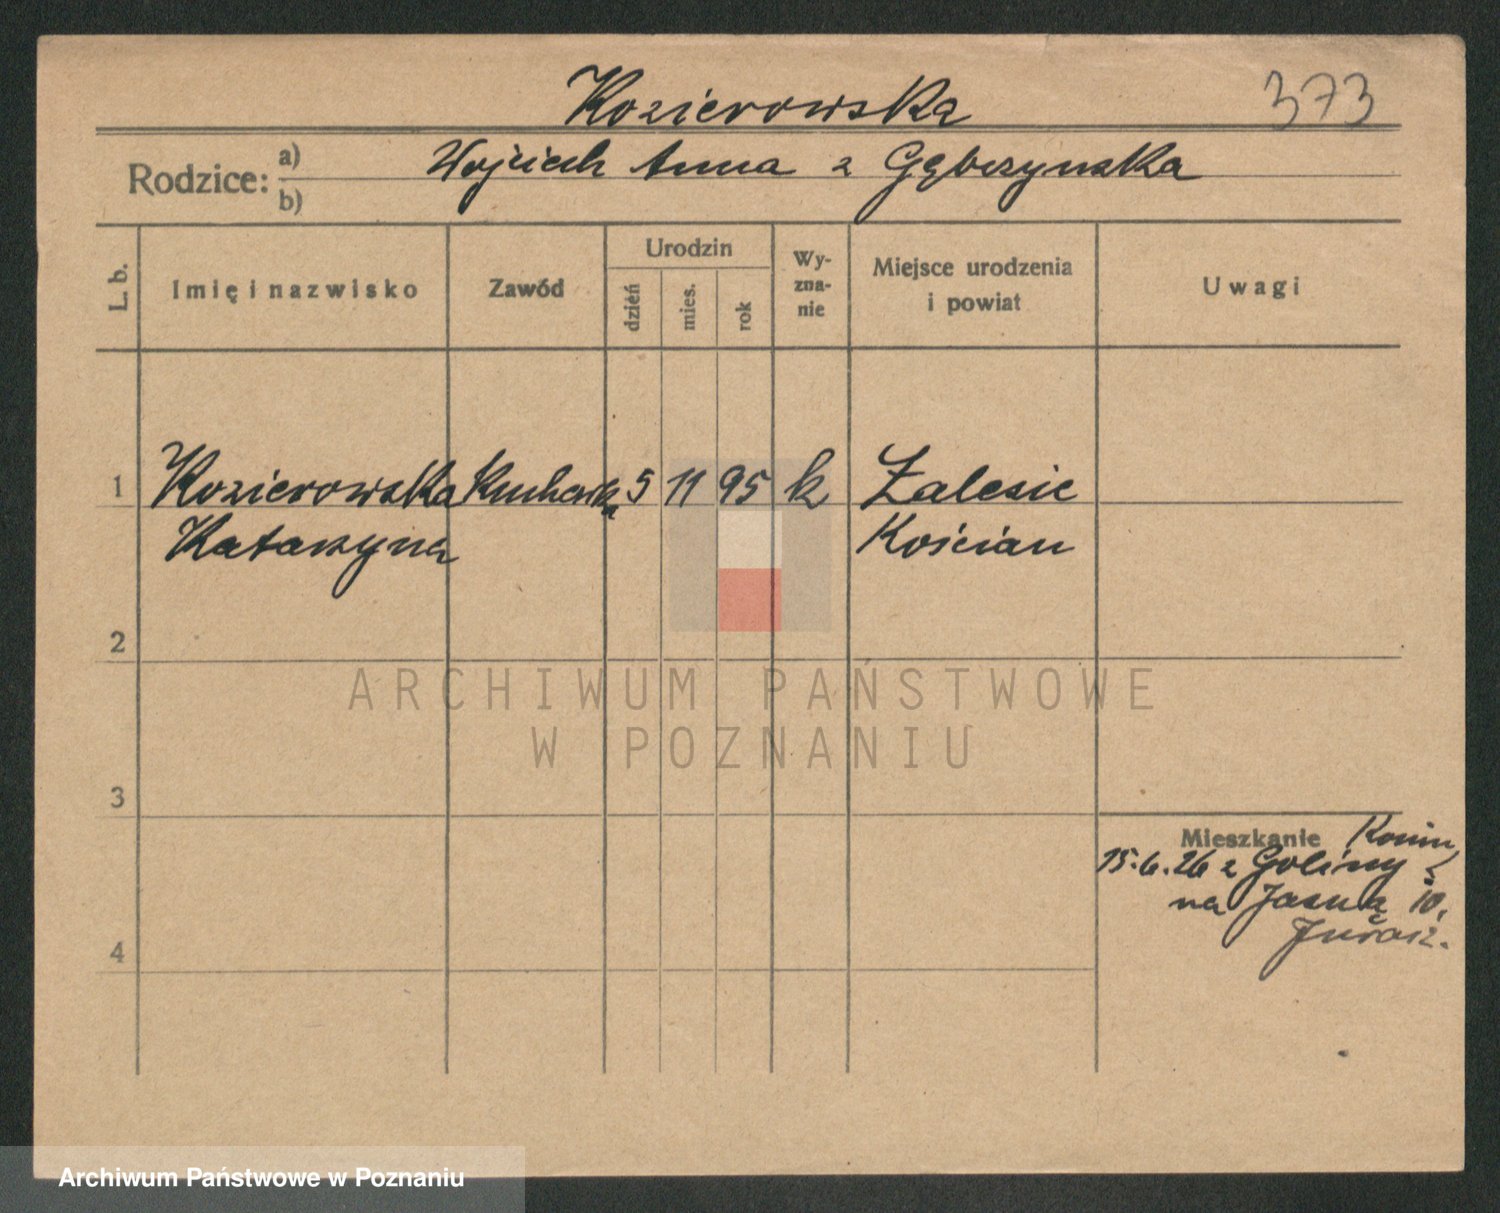 Kozierowska 373
Rodzice: a) Wojciech Anna z Gębczynska
b)
L. b. Imię i nazwisko Zawód Urodzin dzień mies. rok Wyznanie Miejsce urodzenia i powiat Uwagi
1 Kozierowska Kucharka 5 11 95 k Zalesie
Katarzyna Kościan
2
ARCHIWUM PAŃSTWOWE
W POZNANIU
3
Mieszkanie Konin
15.6.26 z Goliny
na Jasna 10,
4
Archiwum Państwowe w Poznaniu